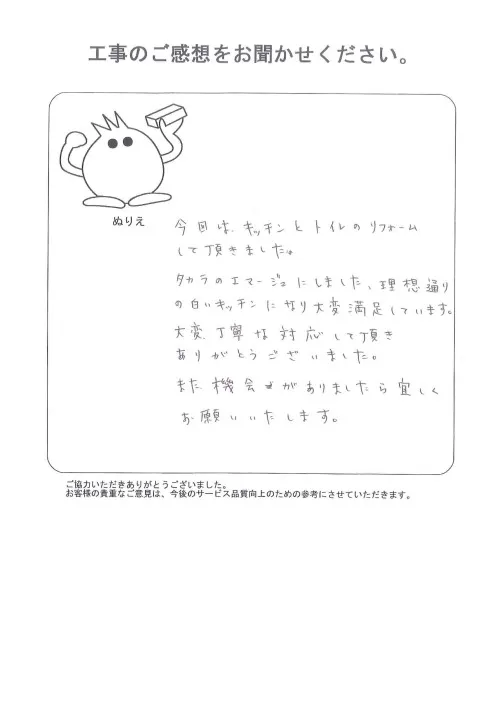 工事のご感想をお聞かせください。
ぬりえ
今回は、キッチンとトイレのリフォーム
して頂きました。
タカラのエマージュにしました、理想通り
の白いキッチンになり大変満足しています。
大変、丁寧な対応して頂き
ありがとうございました。
また機会がありましたら宜しく
お願いいたします。
ご協力いただきありがとうございました。
お客様の貴重なご意見は、今後のサービス品質向上のための参考にさせていただきます。